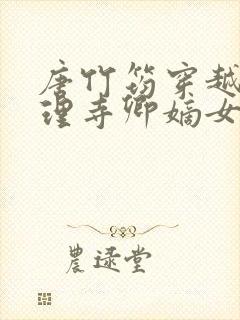 唐竹筠穿越
理寺卿嫡女
農逯堂